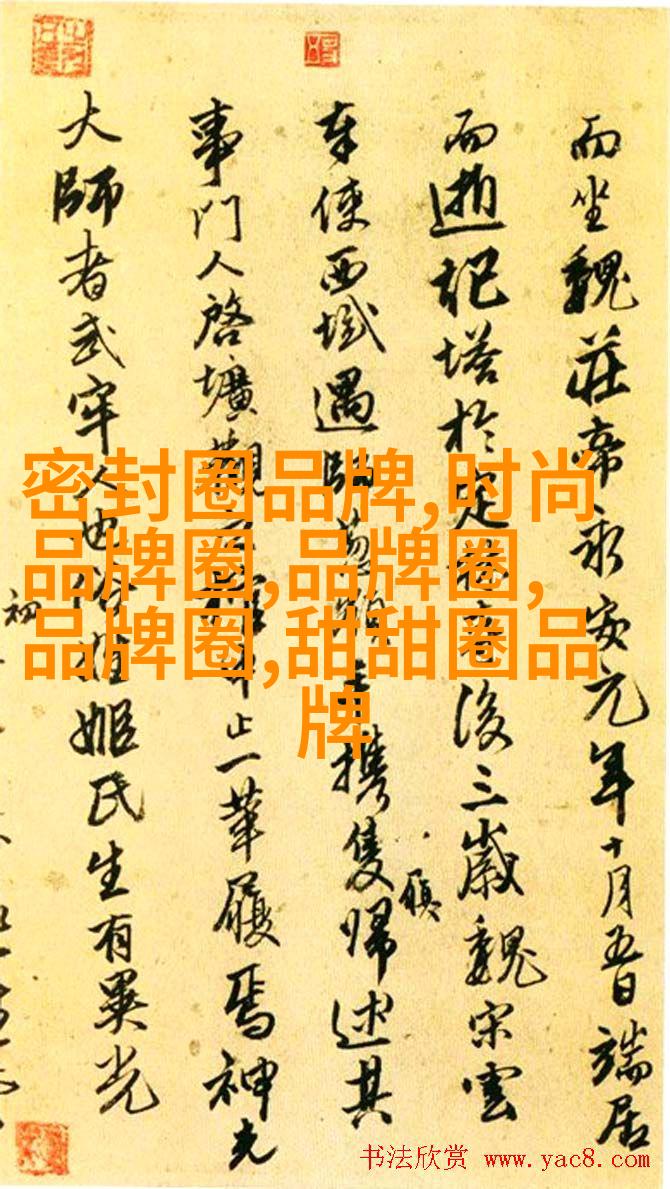 而坐魏莊帝永安元年十月五日端居
而逝記塔於定後三歲魏宋雲
奉使西域遇師攜隻歸述其
履
事門人啓壙觀止一革履焉神光
大師者武牢人也俗姓姬氏生有異光
初
密封圈品牌,时尚
品牌圈,品牌圈,
品牌圈,甜甜圈品
牌
书法欣赏 www.yac8.com